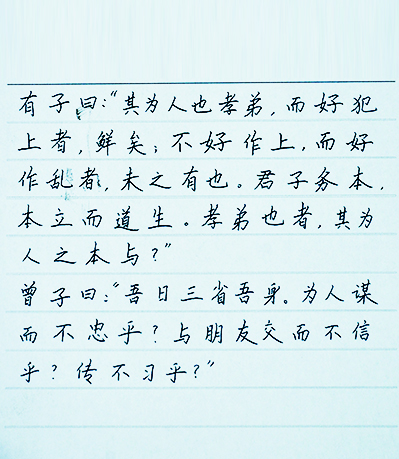 有子曰:“其为人也孝弟,而好犯
上者,鲜矣;不好作上,而好
作乱者,未之有也。君子务本,
本立而道生。孝弟也者,其为
人之本与?”
曾子曰:“吾日三省吾身。为人谋
而不忠乎?与朋友交而不信
乎?传不习乎?”